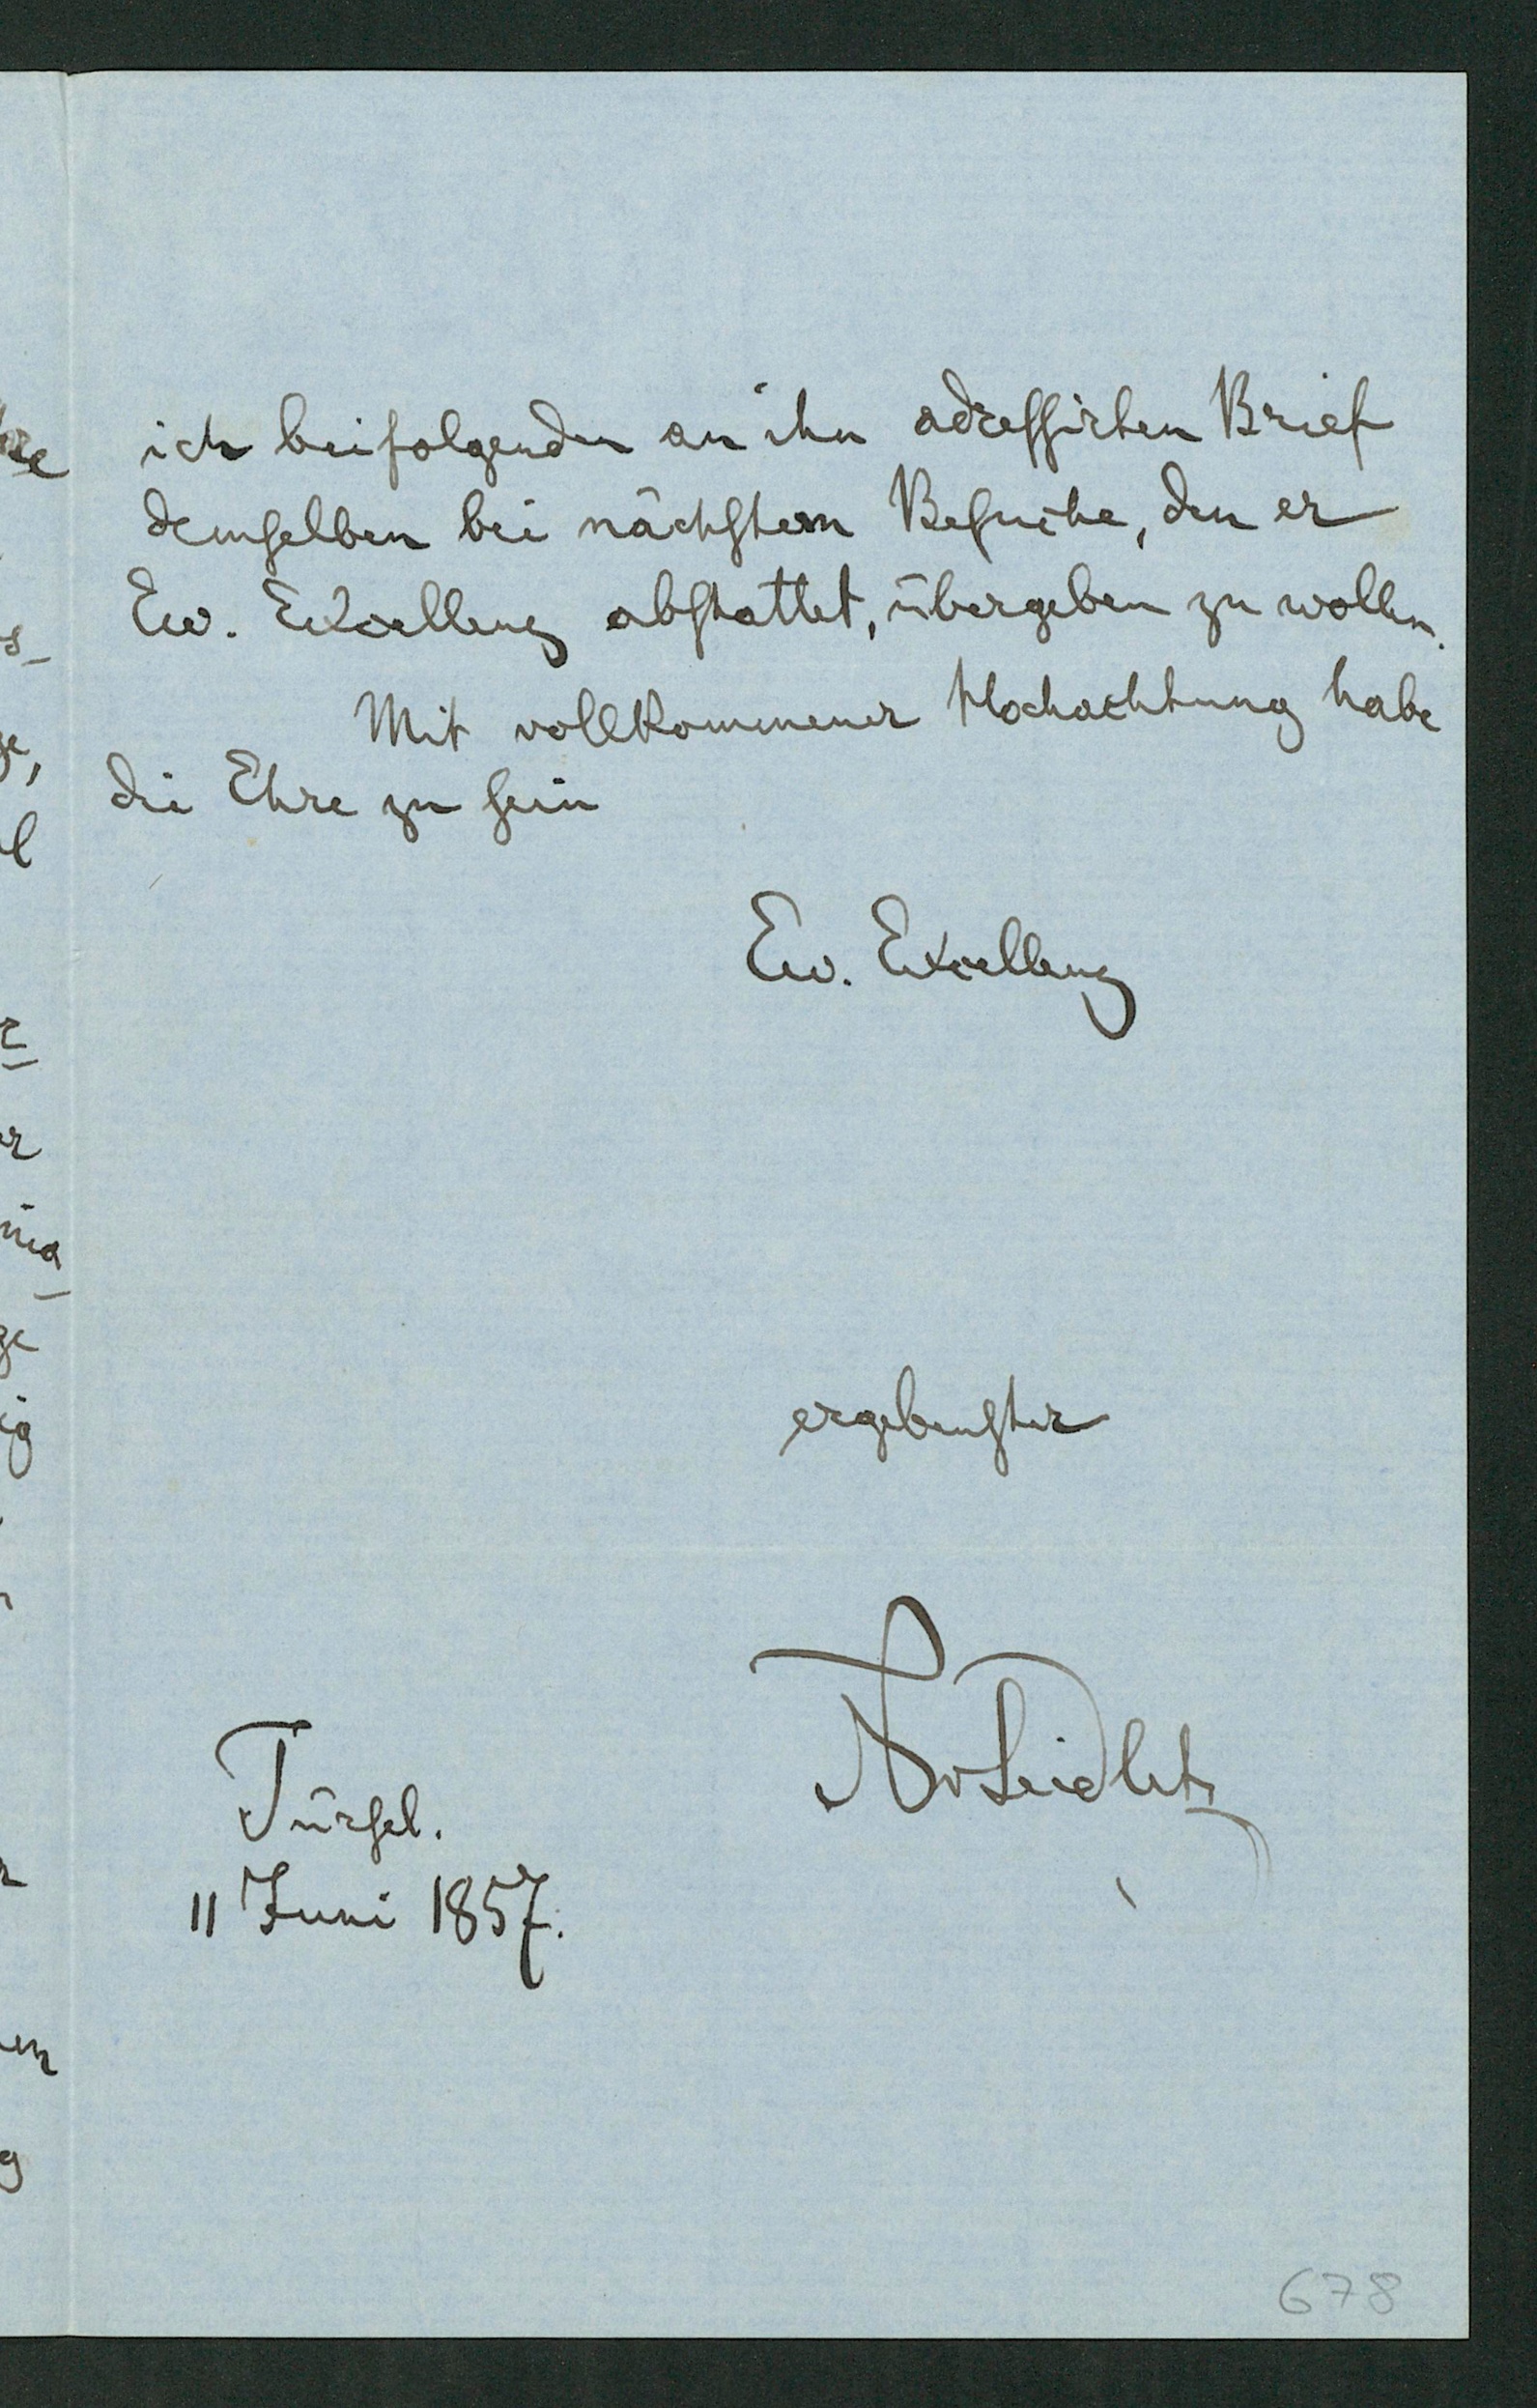 ich beifolgenden an ihn adressirten Brief
demselben bei nächstem Besuche, den er
Ew. Excellenz abstattet, übergeben zu wollen.
Mit vollkommener Hochachtung habe
die Ehre zu sein
Ew. Excellenz
ergebenster
NvSeidlitz
Türsel.
11 Juni 1857.
678